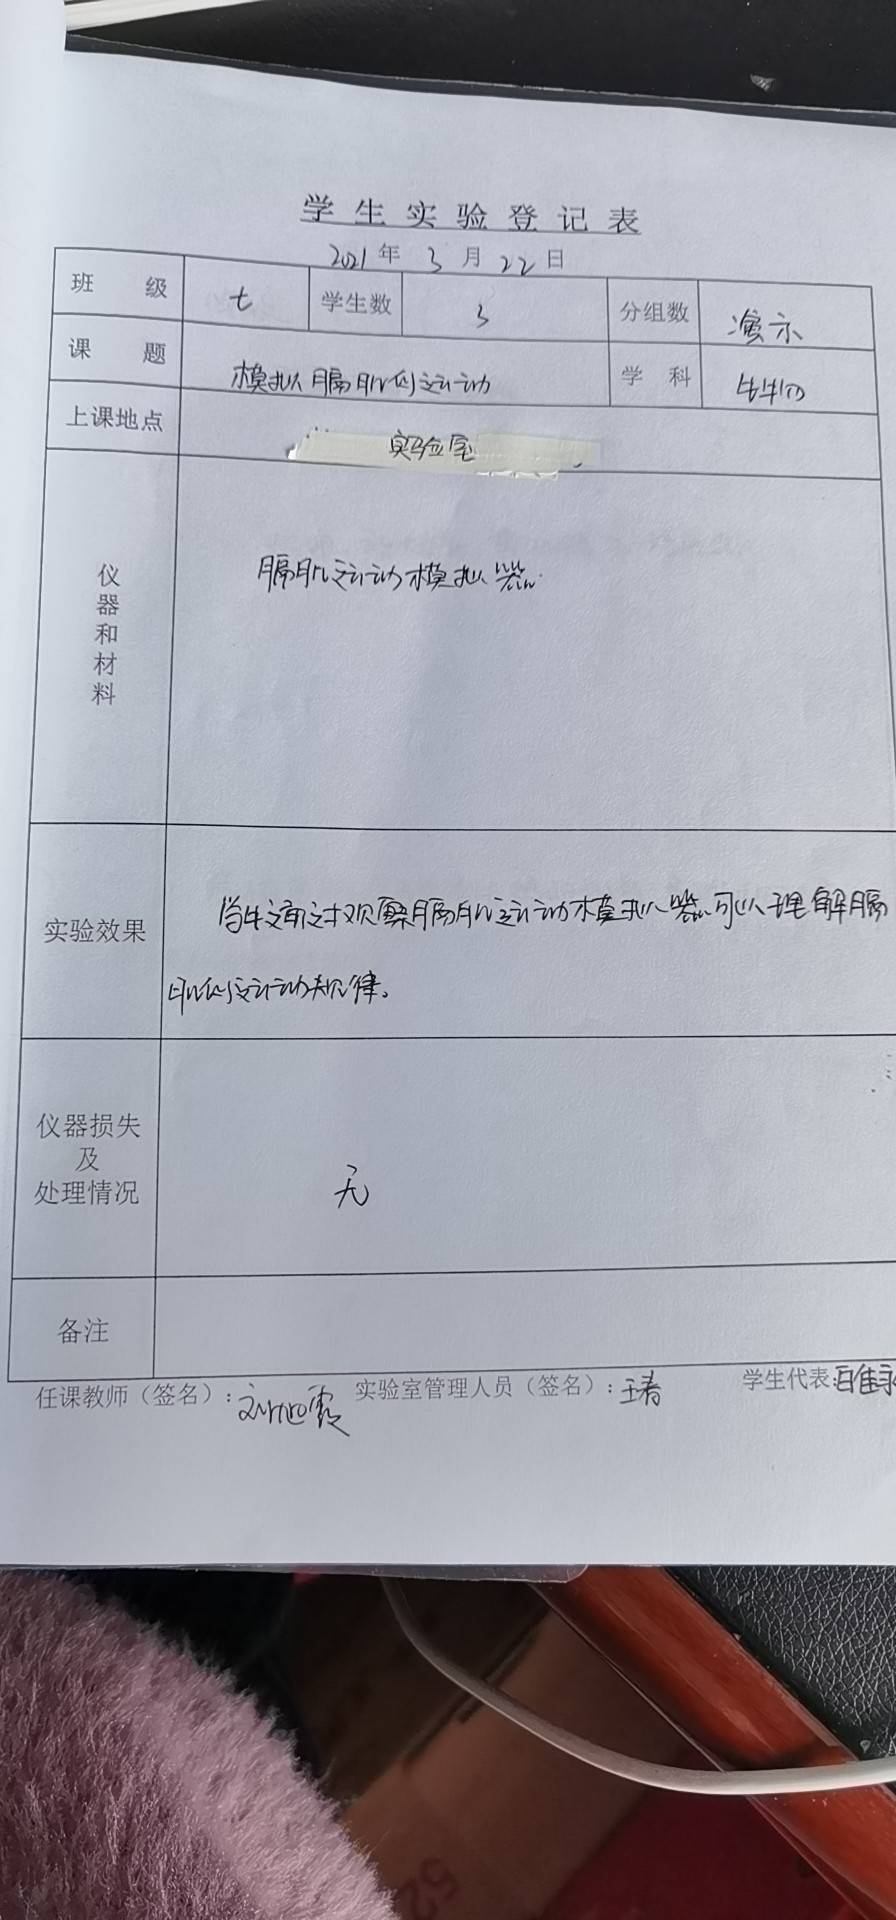 学生实验登记表
2021年 3月 22日
班级 七 学生数 3 分组数 演示
课题 模拟膈肌的运动 学科 生物
上课地点 实验室
仪器和材料 膈肌运动模拟器
实验效果 学生通过观察膈肌运动模拟器可以理解膈
肌的运动规律。
仪器损失
及
处理情况 无
备注
任课教师（签名）：刘旭霞 实验室管理人员（签名）：王春 学生代表：